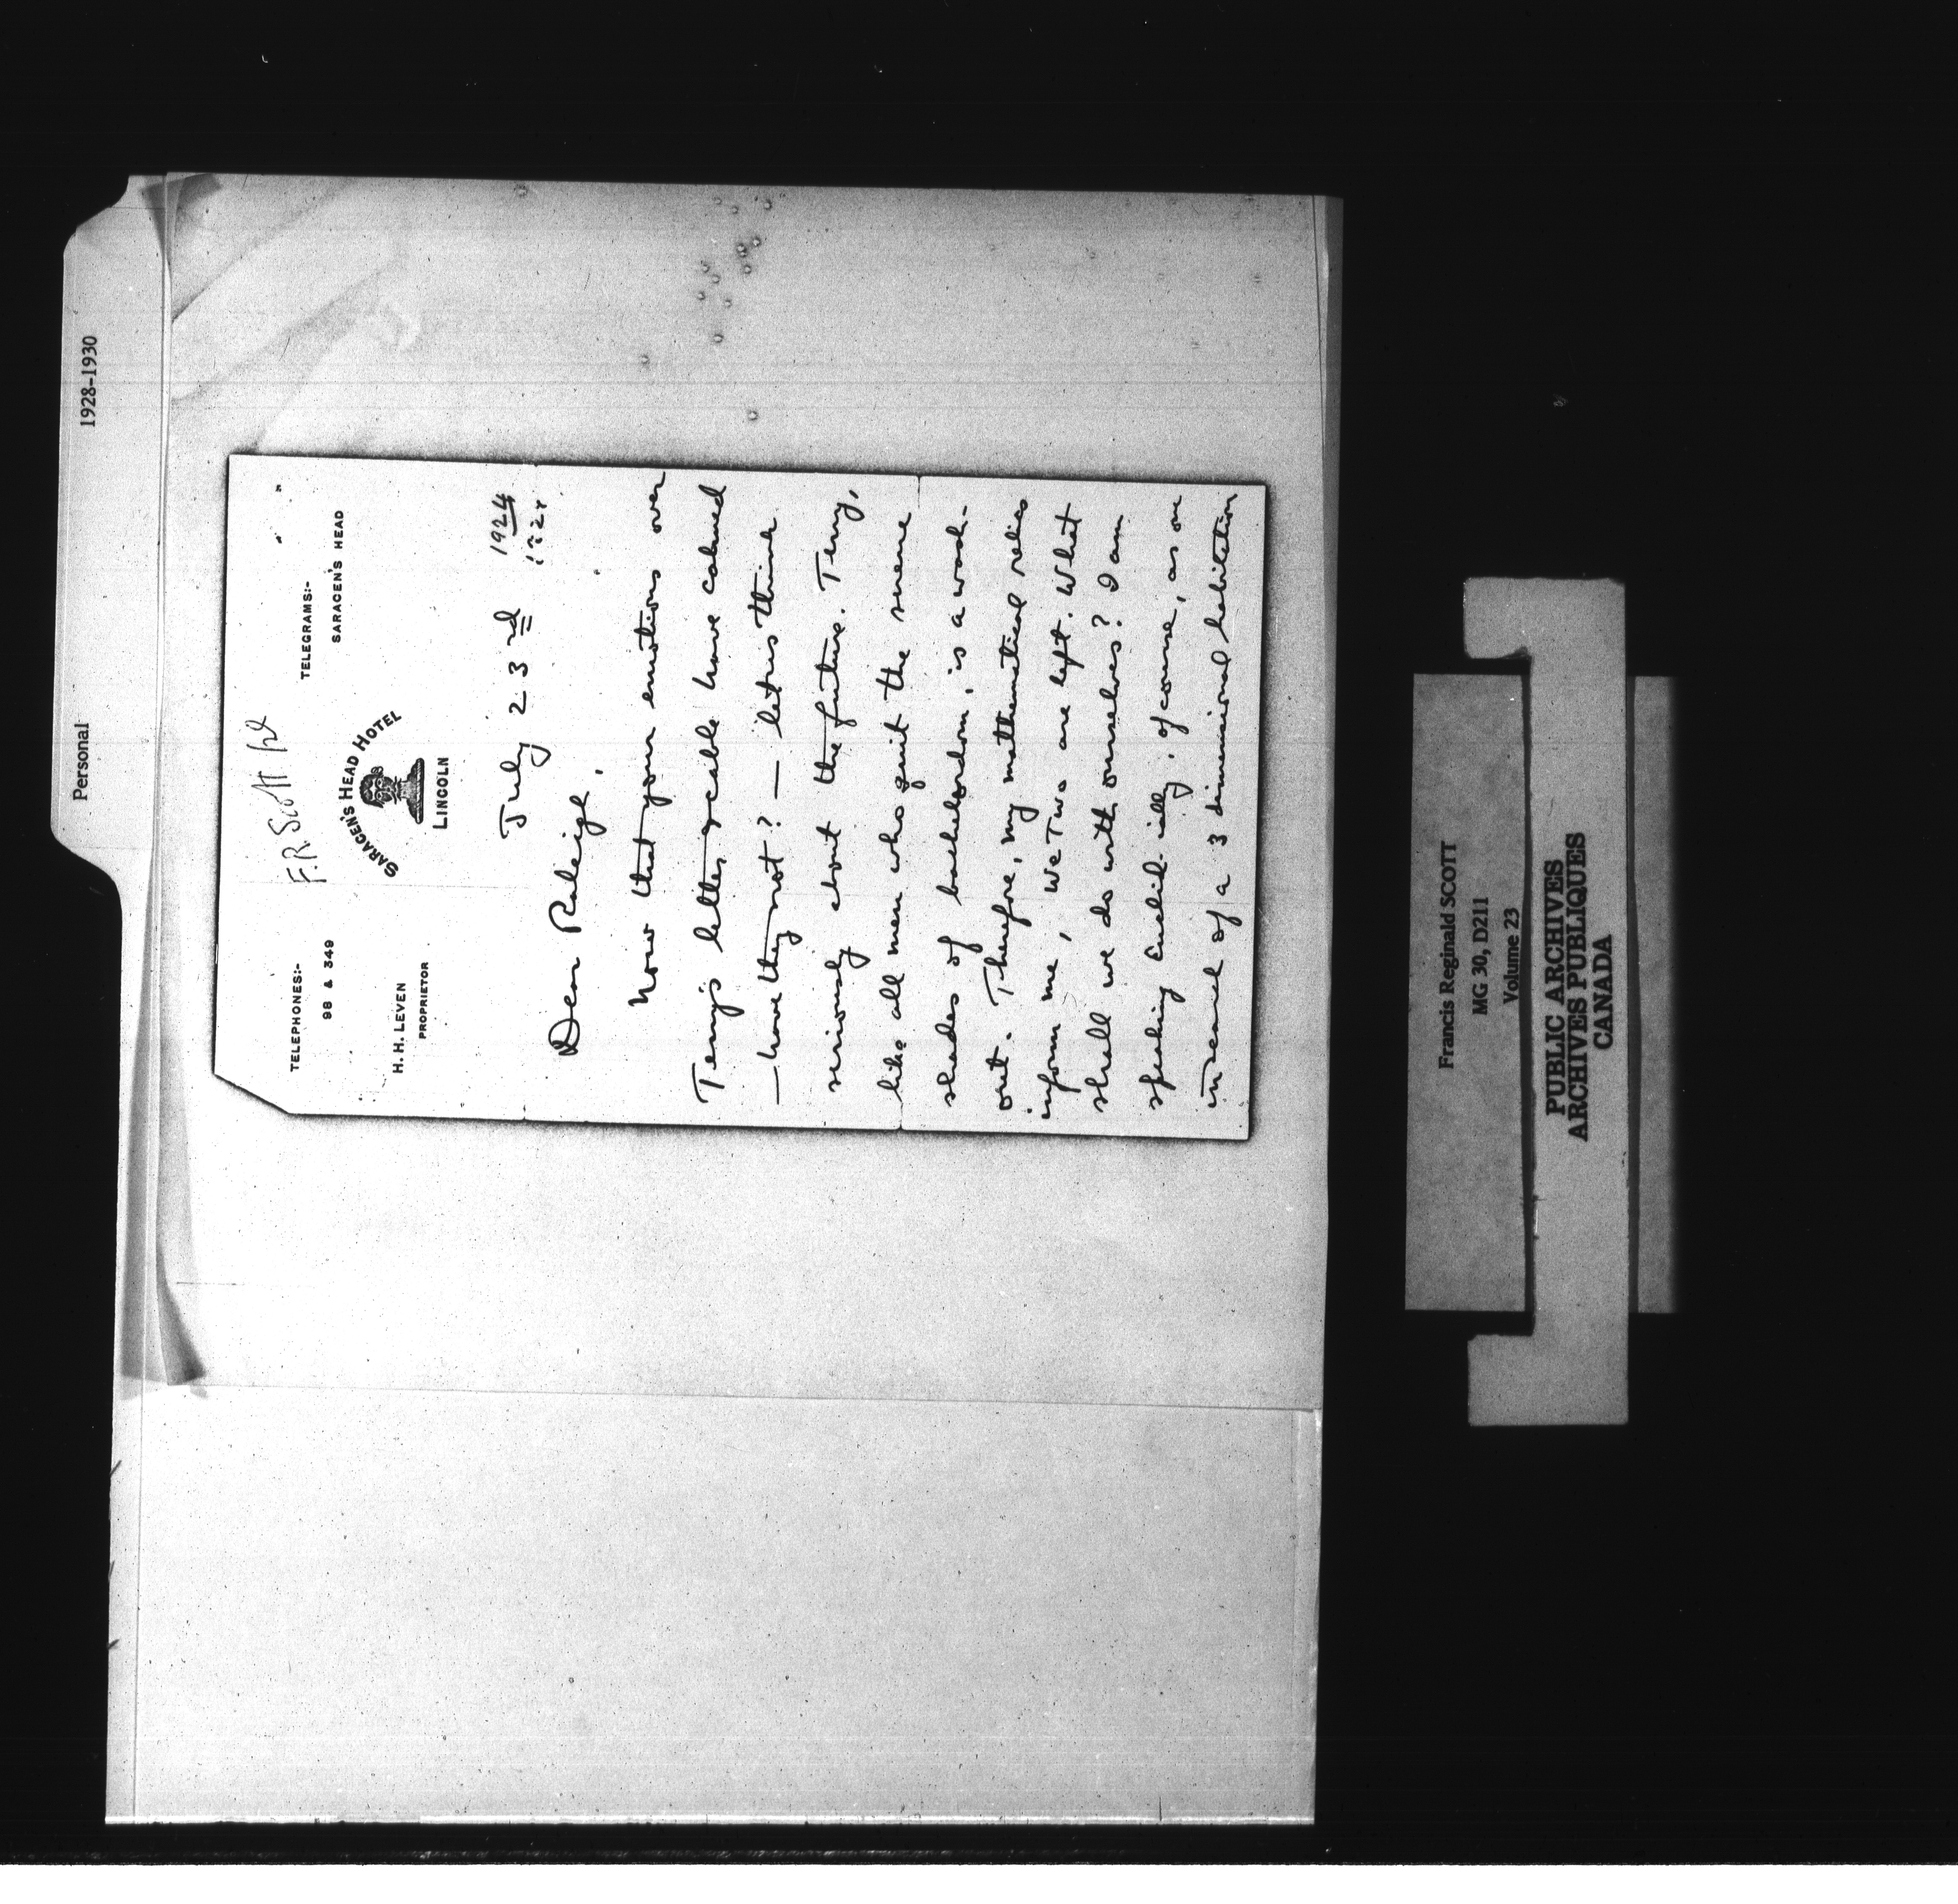 Personal
1928-1930
F.R. Scott
TELEPHONES:-
98 & 349
TELEGRAMS:-
SARACEN'S HEAD
SARACEN'S HEAD HOTEL
LINCOLN
H. H. LEVEN
PROPRIETOR
July 23rd 1924
Dear Raleigh,
Now that your emotions over
Terry's letter have calmed
— have they not? — let us think
seriously about the future. Terry,
like all men who quit the serene
shades of bachelordom, is a wash-
out. Therefore, my mathematical relics
inform me, We Two are left. What
shall we do with ourselves? I am
speaking Euclid-ially, of course, as one
in search of a 3 dimensional habitation
Francis Reginald SCOTT
MG 30, D211
Volume 23
PUBLIC ARCHIVES
ARCHIVES PUBLIQUES
CANADA